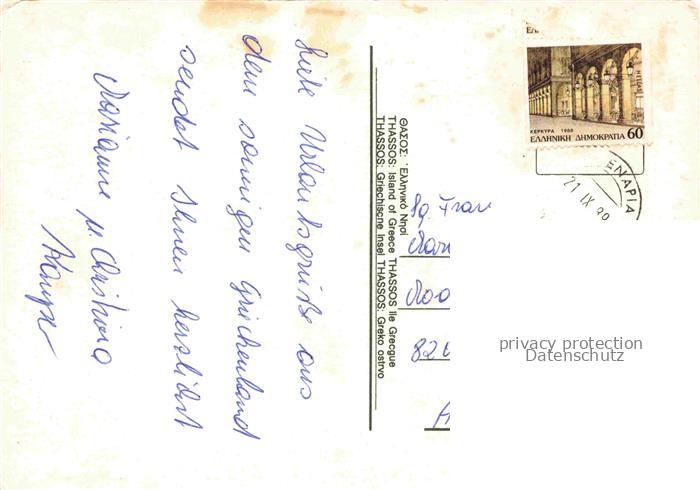 Liebe Urlaubsgrüße aus
dem sonnigen Griechenland
sendet Ihnen herzlichst
Marianne u. Christiana
ΘΑΣΟΣ: Ἑλληνικό Νησί
THASSOS: Island of Greece THASSOS Ile Grecque
THASSOS: Griechische Insel THASSOS: Greko ostrvo
ΚΕΡΚΥΡΑ 1988
ΕΛΛΗΝΙΚΗ ΔΗΜΟΚΡΑΤΙΑ 60
HELLAS
ΕΝΑΡΙΑ
21 IX 89
Fg. Frau
820
privacy protection
Datenschutz